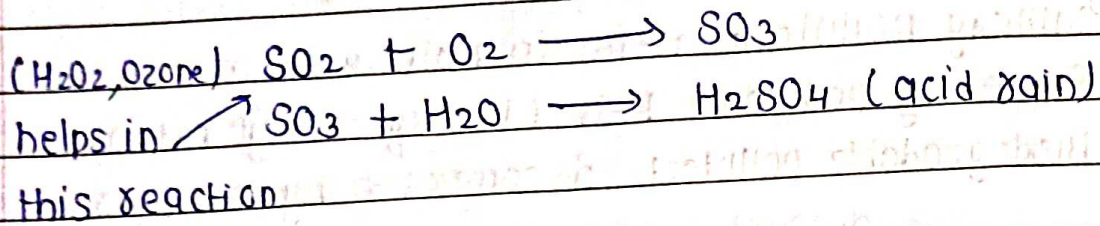 (H2O2, Ozone) SO2 + O2 ⟶ SO3
helps in ↗ SO3 + H2O ⟶ H2SO4 (acid rain)
this reaction